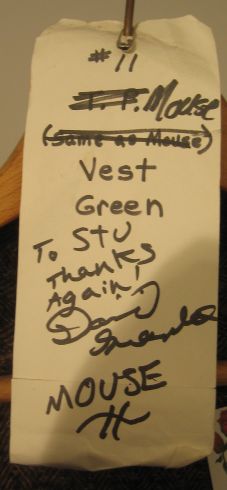 #11
T. F. Mouse
(Same as Mouse)
Vest
Green
To Stu
Thanks
Again!
David
MOUSE